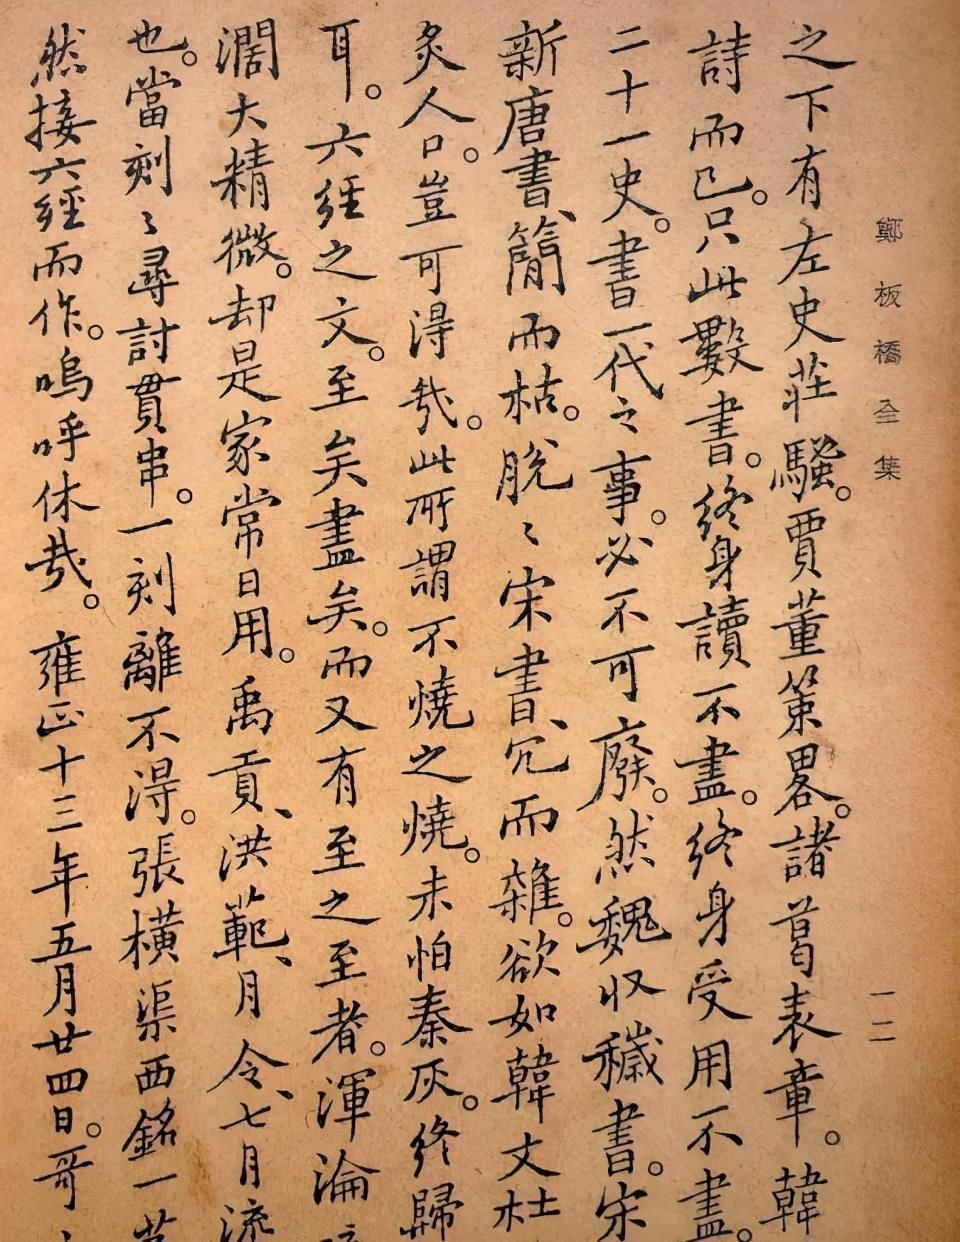 鄭板橋全集
一二
之下有左史莊騷。賈董策畧。諸葛表章。韓
詩而已。只此數書。終身讀不盡。終身受用不盡。
二十一史。書一代之事。必不可廢。然魏收穢書。宋
新唐書、簡而枯。脫〻宋書、冗而雜。欲如韓文杜
炙人口。豈可得哉。此所謂不燒之燒。未怕秦灰。終歸
耳。六經之文。至矣盡矣。而又有至之至者。渾淪
濶大精微。却是家常日用。禹貢、洪範、月令、七月流
也。當刻〻尋討貫串。一刻離不得。張橫渠西銘一
然接六經而作。嗚呼休哉。雍正十三年五月廿四日。哥